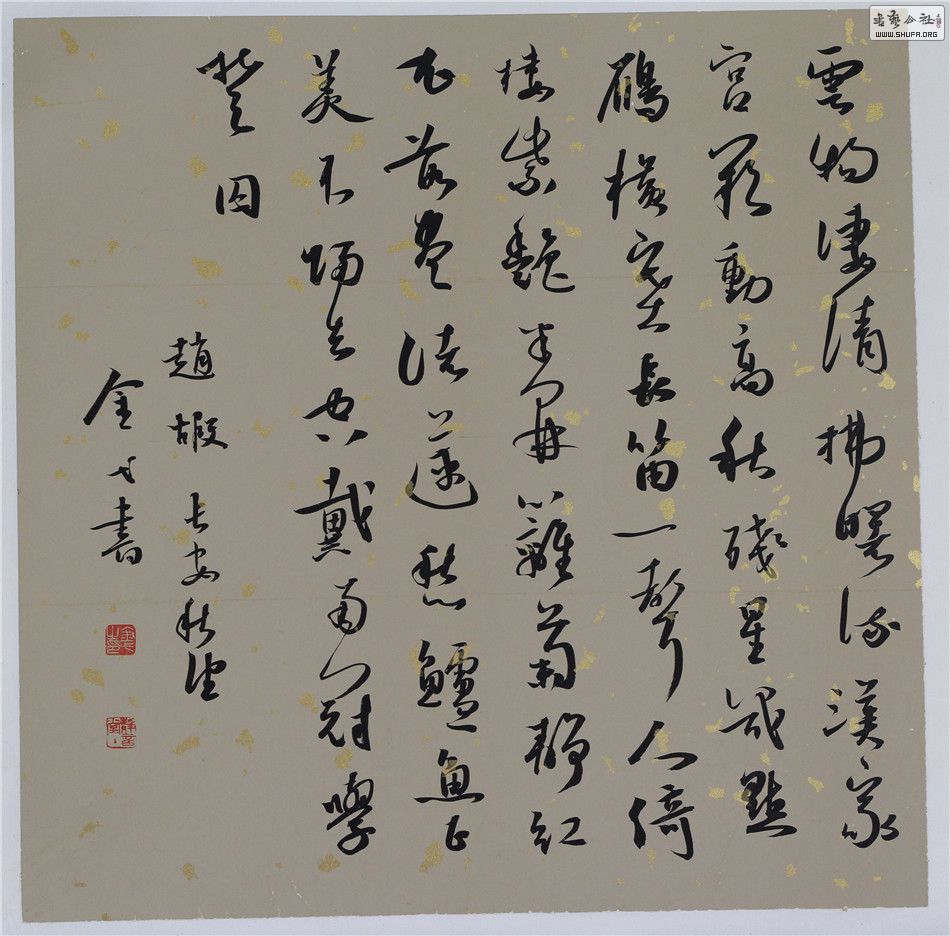 雲物淒清拂曙流漢家
宮闕動高秋殘星幾點
鴈橫塞長笛一聲人倚
樓紫艷半開籬菊靜紅
衣落盡渚蓮愁鱸魚正
美不歸去空戴南冠學
楚囚
趙嘏長安秋望
金書
書藝公社
WWW.SHUFA.ORG